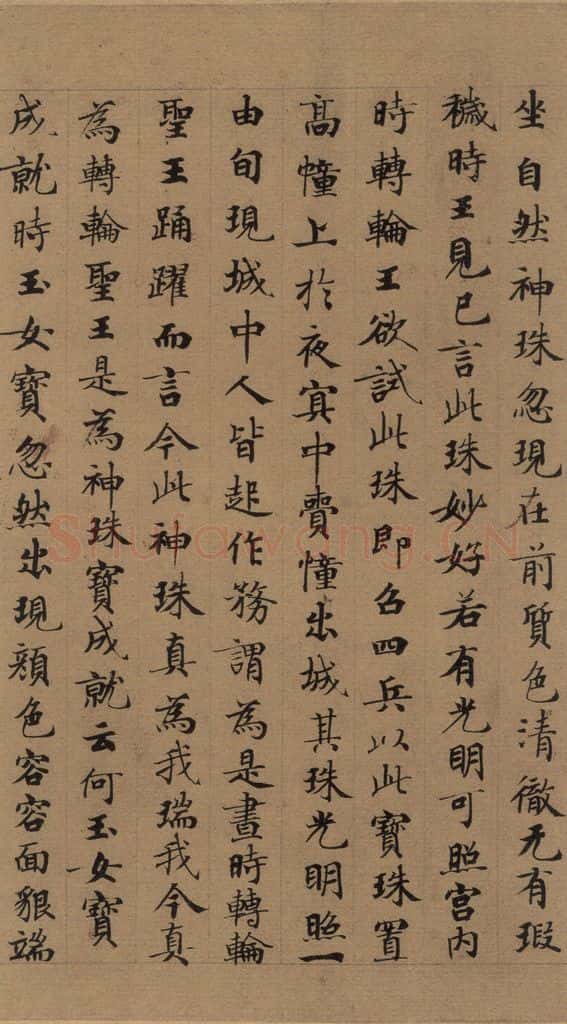 坐自然神珠忽現在前質色清徹无有瑕
穢時王見已言此珠妙好若有光明可照宮内
時轉輪王欲試此珠即召四兵以此寶珠置
高幢上於夜冥中賷憧出城其珠光明照一
由旬現城中人皆起作務謂為是晝時轉輪
聖王踊躍而言今此神珠真為我瑞我今真
為轉輪聖王是為神珠寶成就云何玉女寶
成就時玉女寶忽然出現顔色容容面貇端
Shufawang.CN